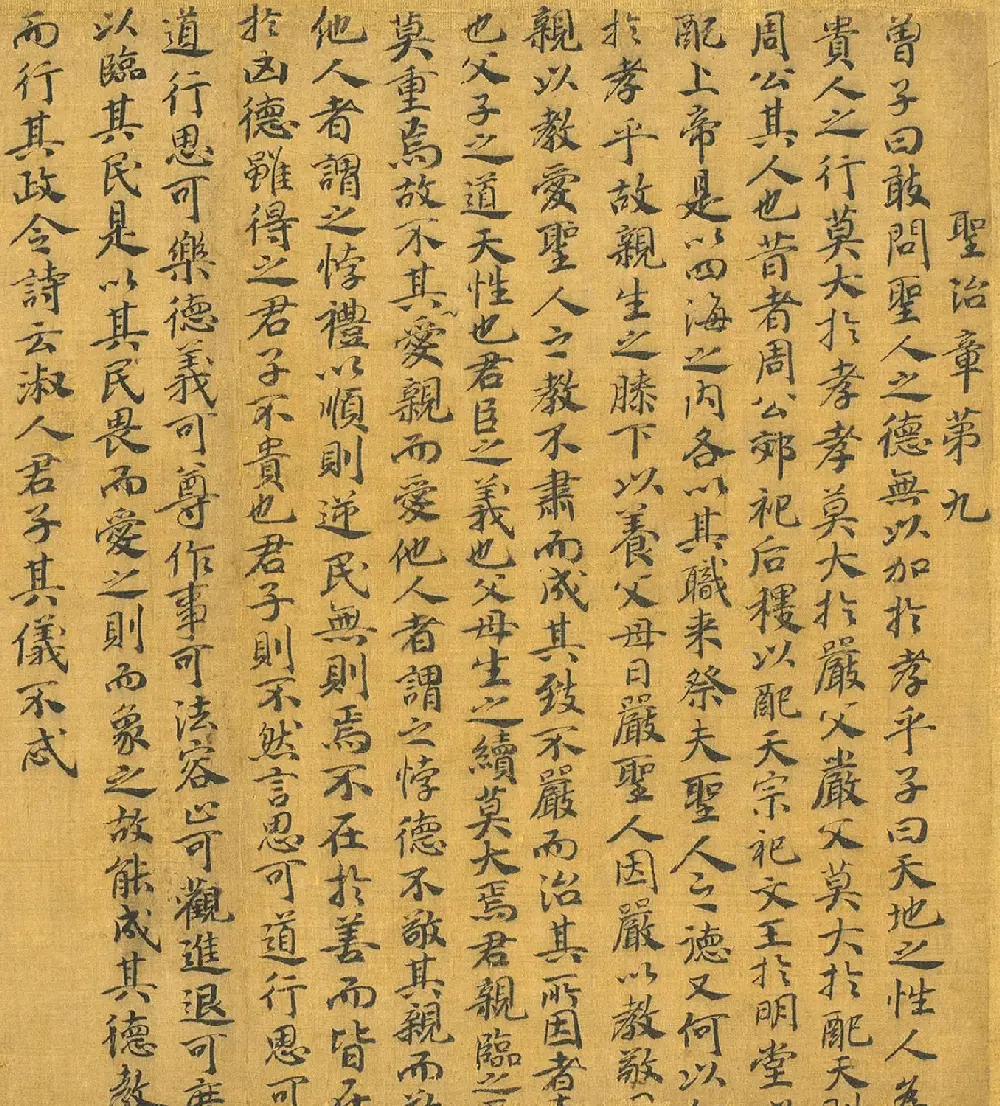 聖治章第九
曾子曰敢問聖人之德無以加於孝乎子曰天地之性人為
貴人之行莫大於孝孝莫大於嚴父嚴父莫大於配天則
周公其人也昔者周公郊祀后稷以配天宗祀文王於明堂
配上帝是以四海之内各以其職来祭夫聖人之德又何以
於孝乎故親生之膝下以養父母日嚴聖人因嚴以教敬
親以教愛聖人之教不肅而成其致不嚴而治其所因者
也父子之道天性也君臣之義也父母生之續莫大焉君親臨之
莫重焉故不其愛親而愛他人者謂之悖德不敬其親而敬
他人者謂之悖禮以順則逆民無則焉不在於善而皆在
於凶德雖得之君子不貴也君子則不然言思可道行思可
道行思可樂德義可尊作事可法容止可觀進退可度
以臨其民是以其民畏而愛之則而象之故能成其德教
而行其政令詩云淑人君子其儀不忒